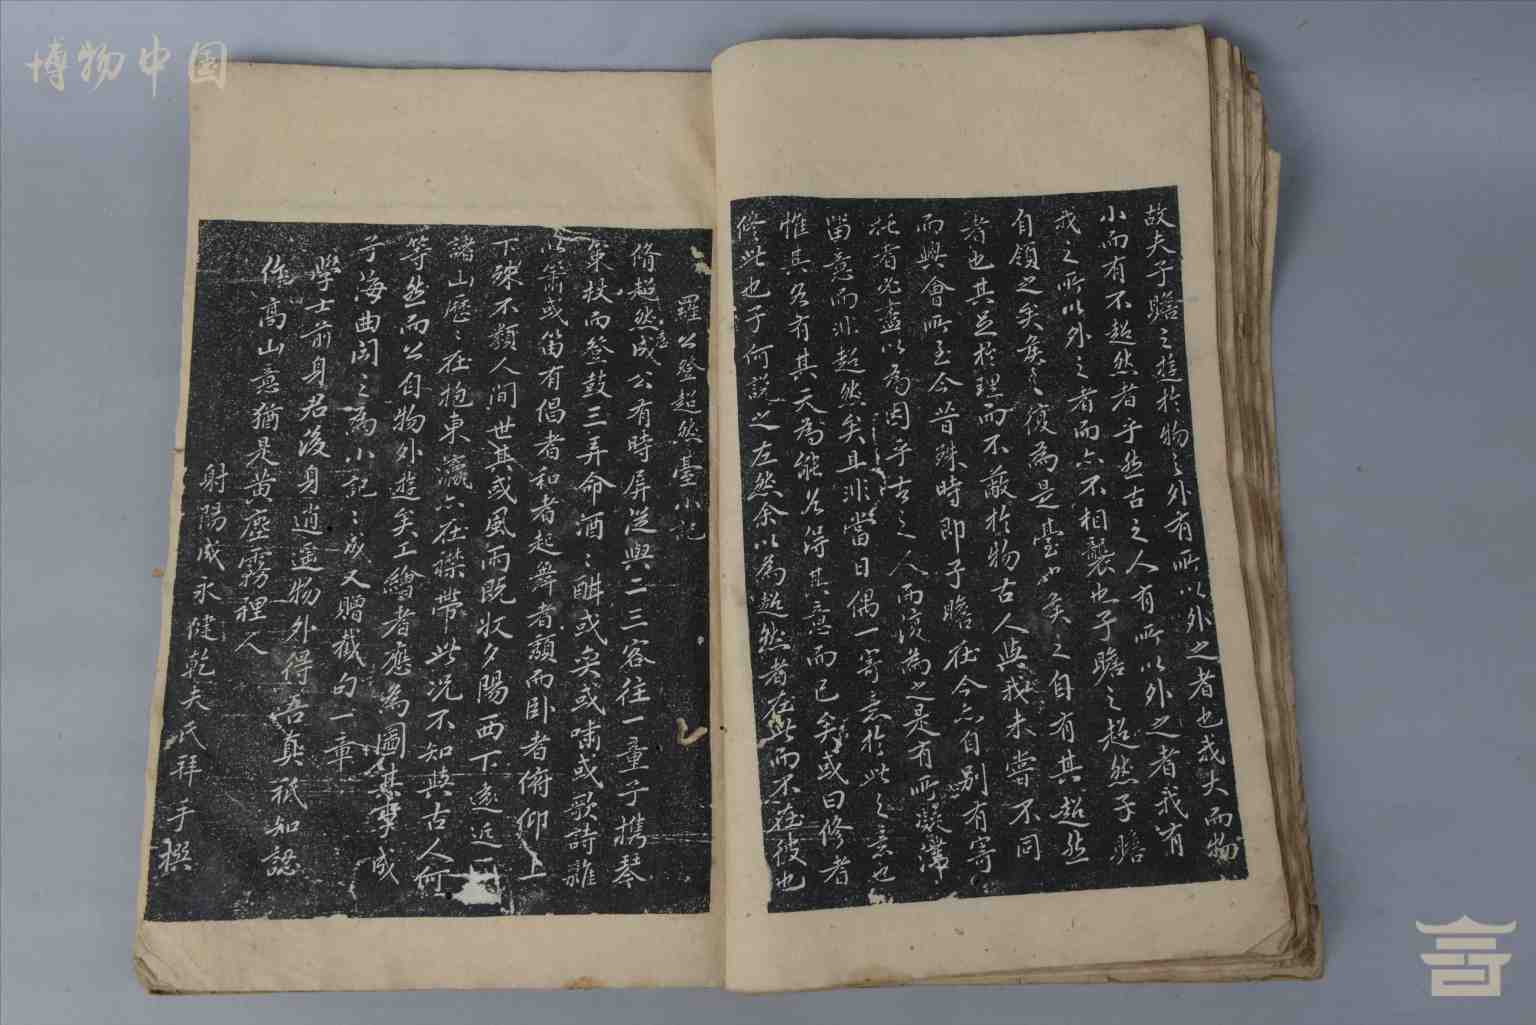 博物中国
故夫子瞻之遊於物之外有所以外之者也或大而物
小而有不超然者乎然古之人有所以外之者我有
我之所以外之者而亦不相襲也子瞻之超然子瞻
自領之矣矦之復為是臺也矦之自有其超然
者也其足於理而不蔽於物古人與我未嘗不同
而興會所至今昔殊時即子瞻在今亦自別有寄
託看必盡以為因乎古之人而後為之是有所凝滯
留意而非超然矣且非當日偶一寄意於此之意也
惟其各有其天為能各得其意而已矣或曰修者
修此也子何説之左然余以為超然者在此而不在彼也
羅公登超然臺小記
脩超然成公有時屏從與二三客往一童子携琴
策杖而登鼓三弄命酒酒酣或奕或嘯或歌詩雜
以簫或笛有倡者和者起舞者頽而卧者俯仰上
下殊不類人間世其或風雨既收夕陽西下遠近
諸山歷歷在抱東瀛亦在襟帶此况不知與古人何
等然而公自物外遊矣工繪者應為圖其事成
子海曲聞之為小記記成又贈截句一章
學士前身君後身逍遥物外得吾真祇知認
作高山意猶是黄塵霧裡人
射陽成永健乾夫氏拜手撰